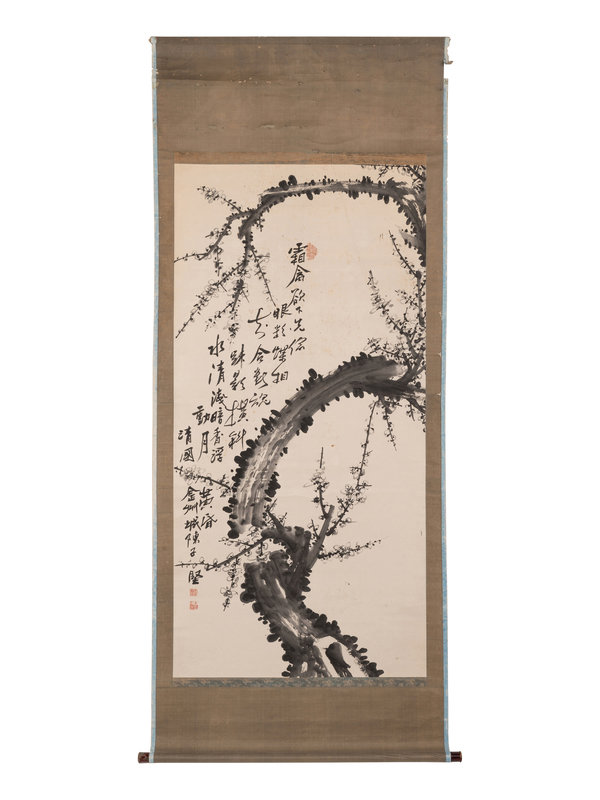 霜禽欲下先偷
眼粉蝶相
知合斷魂
疎影横斜
水清淺暗香浮
動月黄昏
清國金州城陳子堅